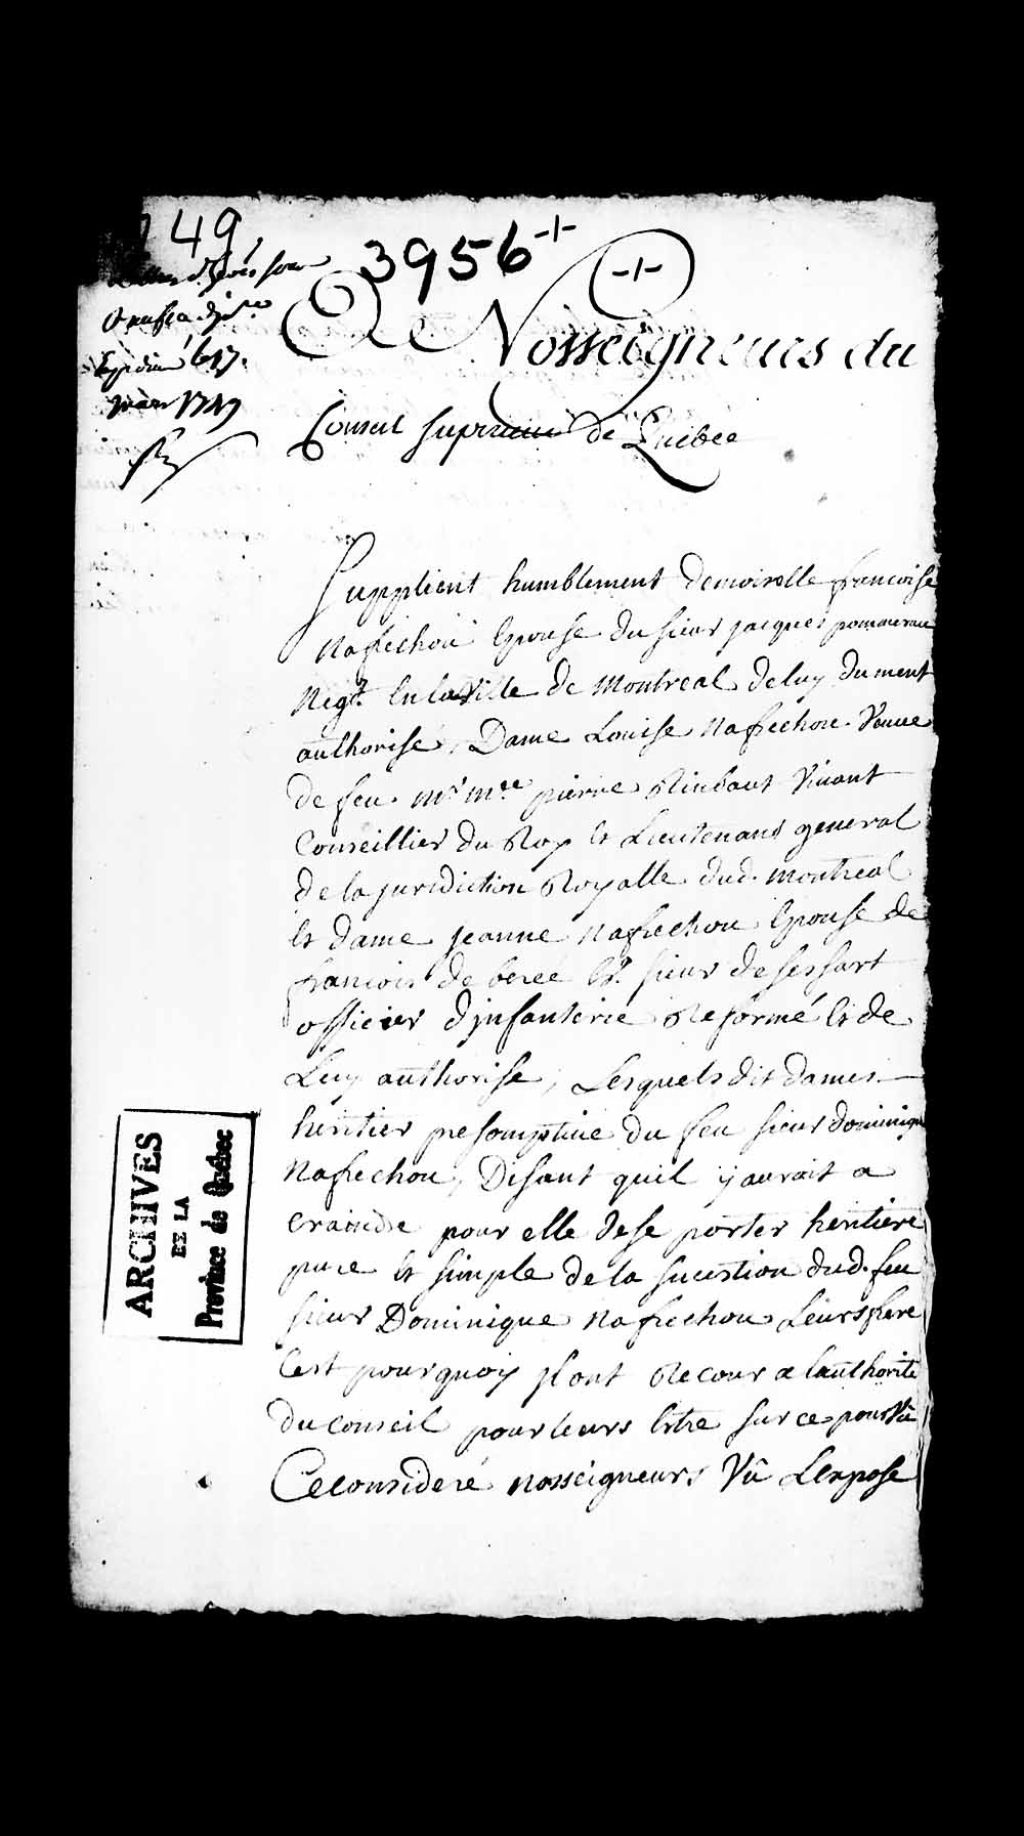 1749
3956
Expedié le 17.
mars 1749
A Nosseigneurs du
Conseil superieur de Quebec
Supplient humblement Demoiselle francoise
Nafrechou Epouse du sieur jacques pommereau
Negt. En la Ville de Montreal de luy dument
authorisé, Dame Louise Nafrechou Veuve
de feu Mr Mre pierre Rimbaut Vivant
Conseillier du Roy Et Lieutenant general
de la juridiction Royalle dud. Montreal
Et dame jeanne Nafrechou Epouse de
francois de berée Er. sieur desessart
officier d'jnfanterie Reformé Et de
Luy authorisé, Lesquels dit dames
heritier presomptive du feu sieur dominique
Nafrechou, Disant quil y aurait a
craindre pour elle de se porter heritiere
pure Et simple de la sucestion dud. feu
sieur Dominique Nafrechou Leurs frere
C'est pourquoy jl ont Recour a lauthorité
du conseil pour leurs Estre sur ce pourvû
Ce consideré nosseigneurs Vû L'Exposé
ARCHIVES
DE LA
Province de Québec